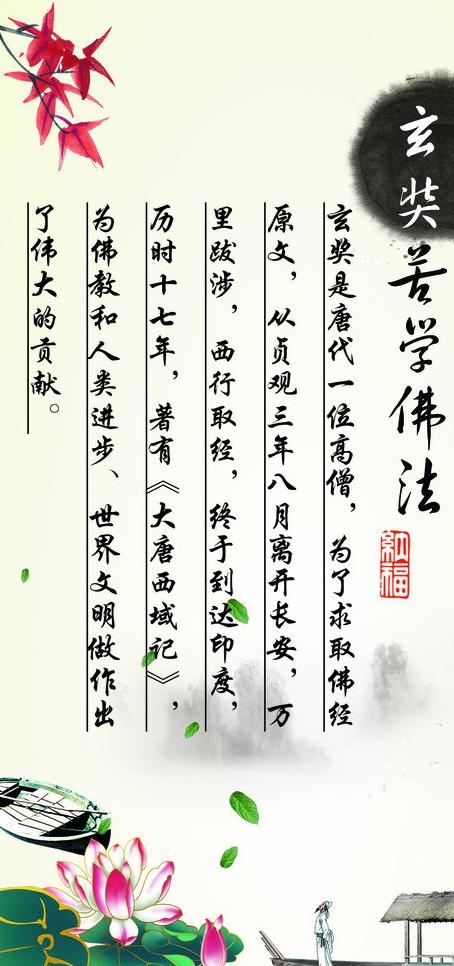 玄奘苦学佛法
納福
玄奘是唐代一位高僧，为了求取佛经
原文，从贞观三年八月离开长安，万
里跋涉，西行取经，终于到达印度，
历时十七年，著有《大唐西域记》，
为佛教和人类进步、世界文明做作出
了伟大的贡献。